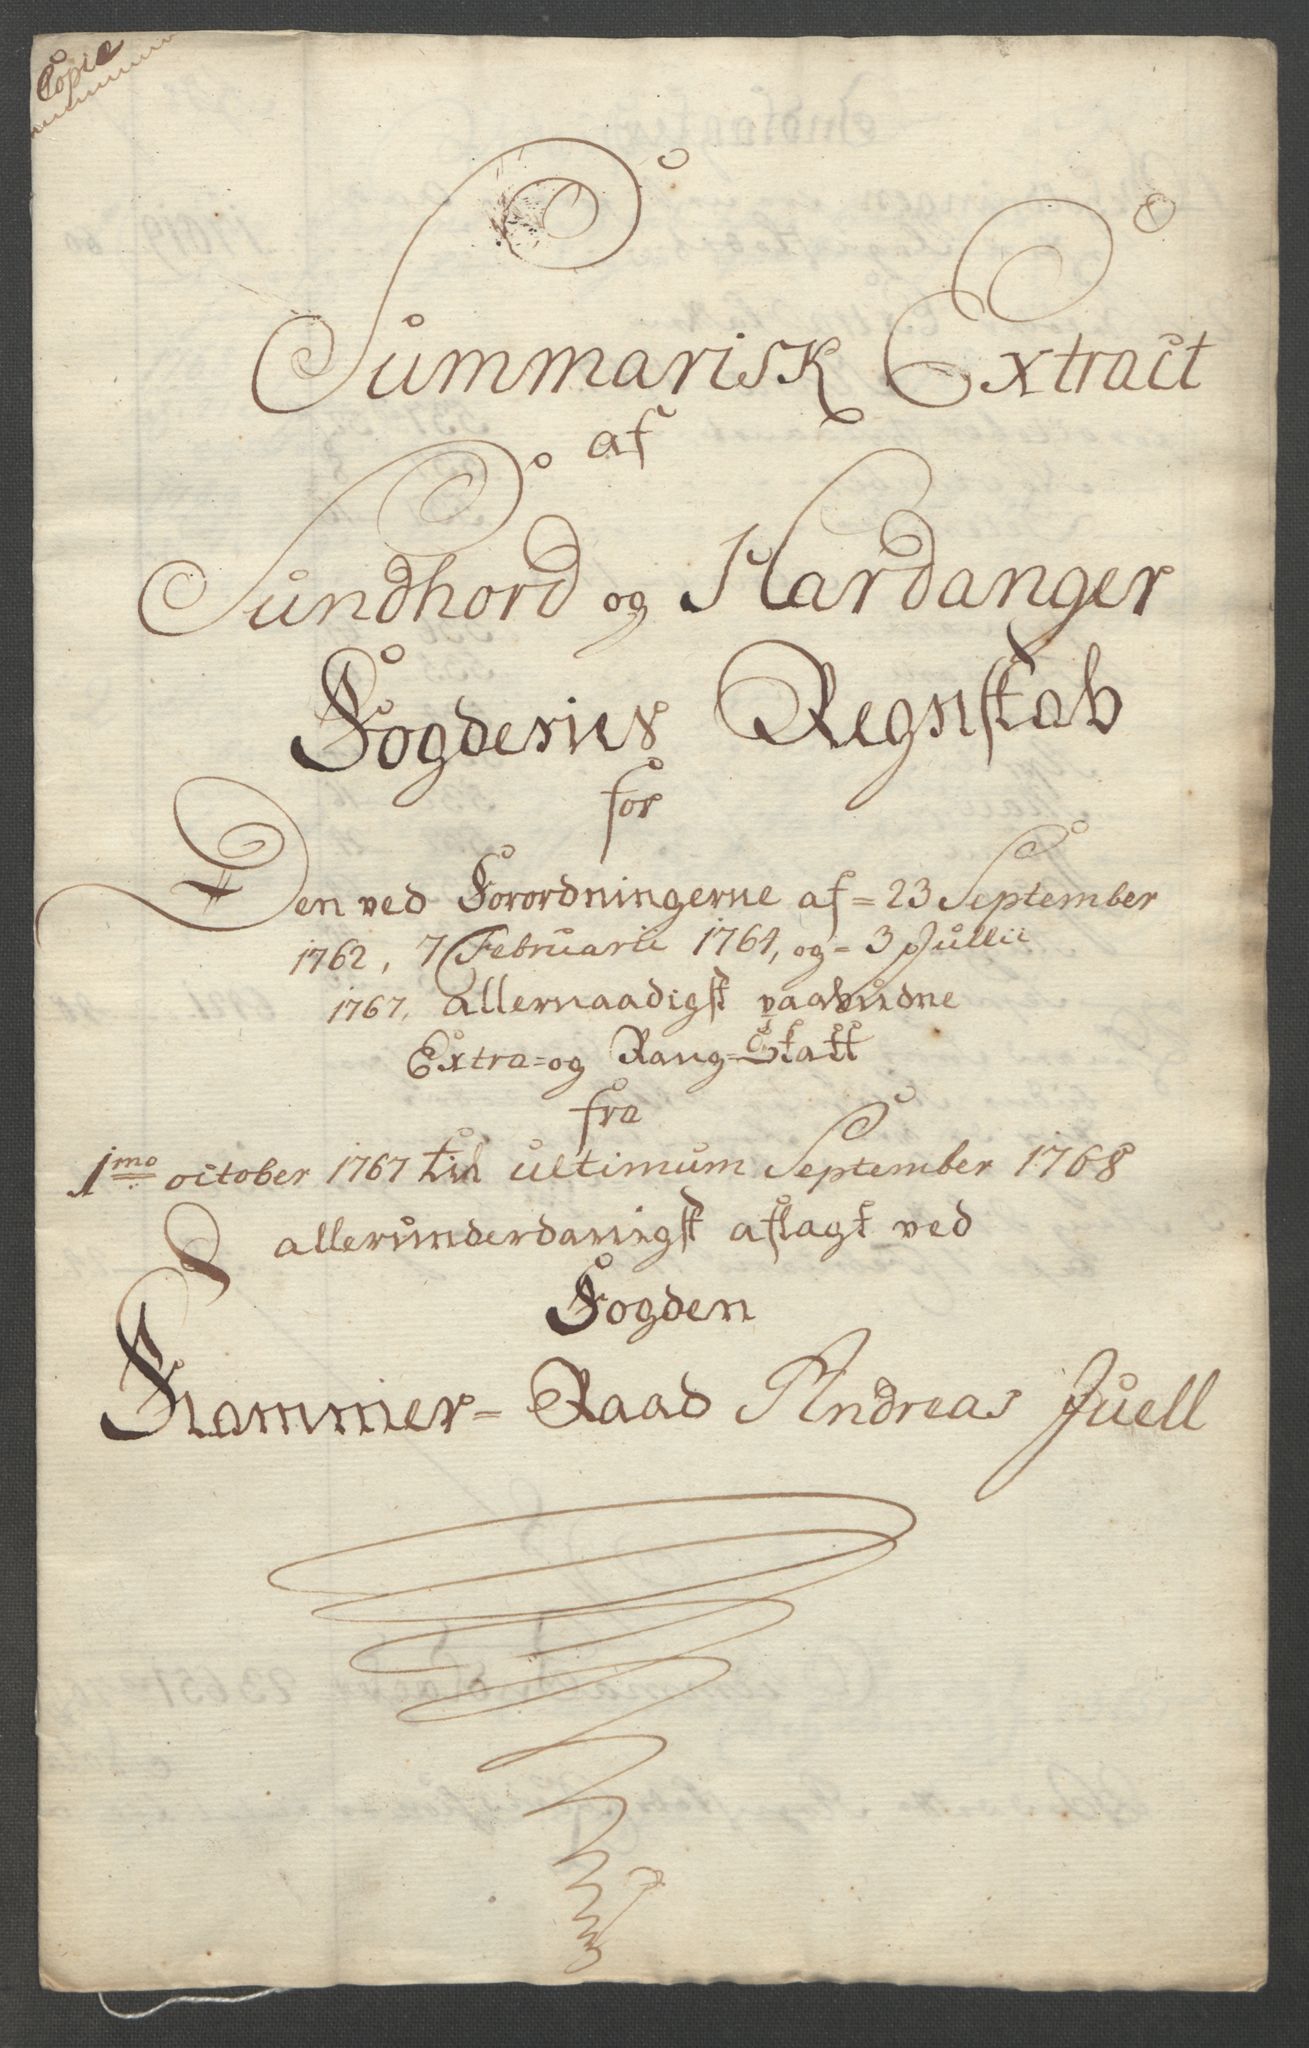 Copie
Summarisk Extract
af
Sundhord og Hardanger
Fogderies Regnskab
for
Den ved Forordningerne af = 23 September
1762, 7 Februarii 1764, og = 3 Jullii
1767, allernaadigst paabudne
Extra= og Rang=Skatt
fra
1mo october 1767 til ultimum September 1768
allerunderdanigst aflagt ved
Fogden
Kammer= Raad Andreas Juell